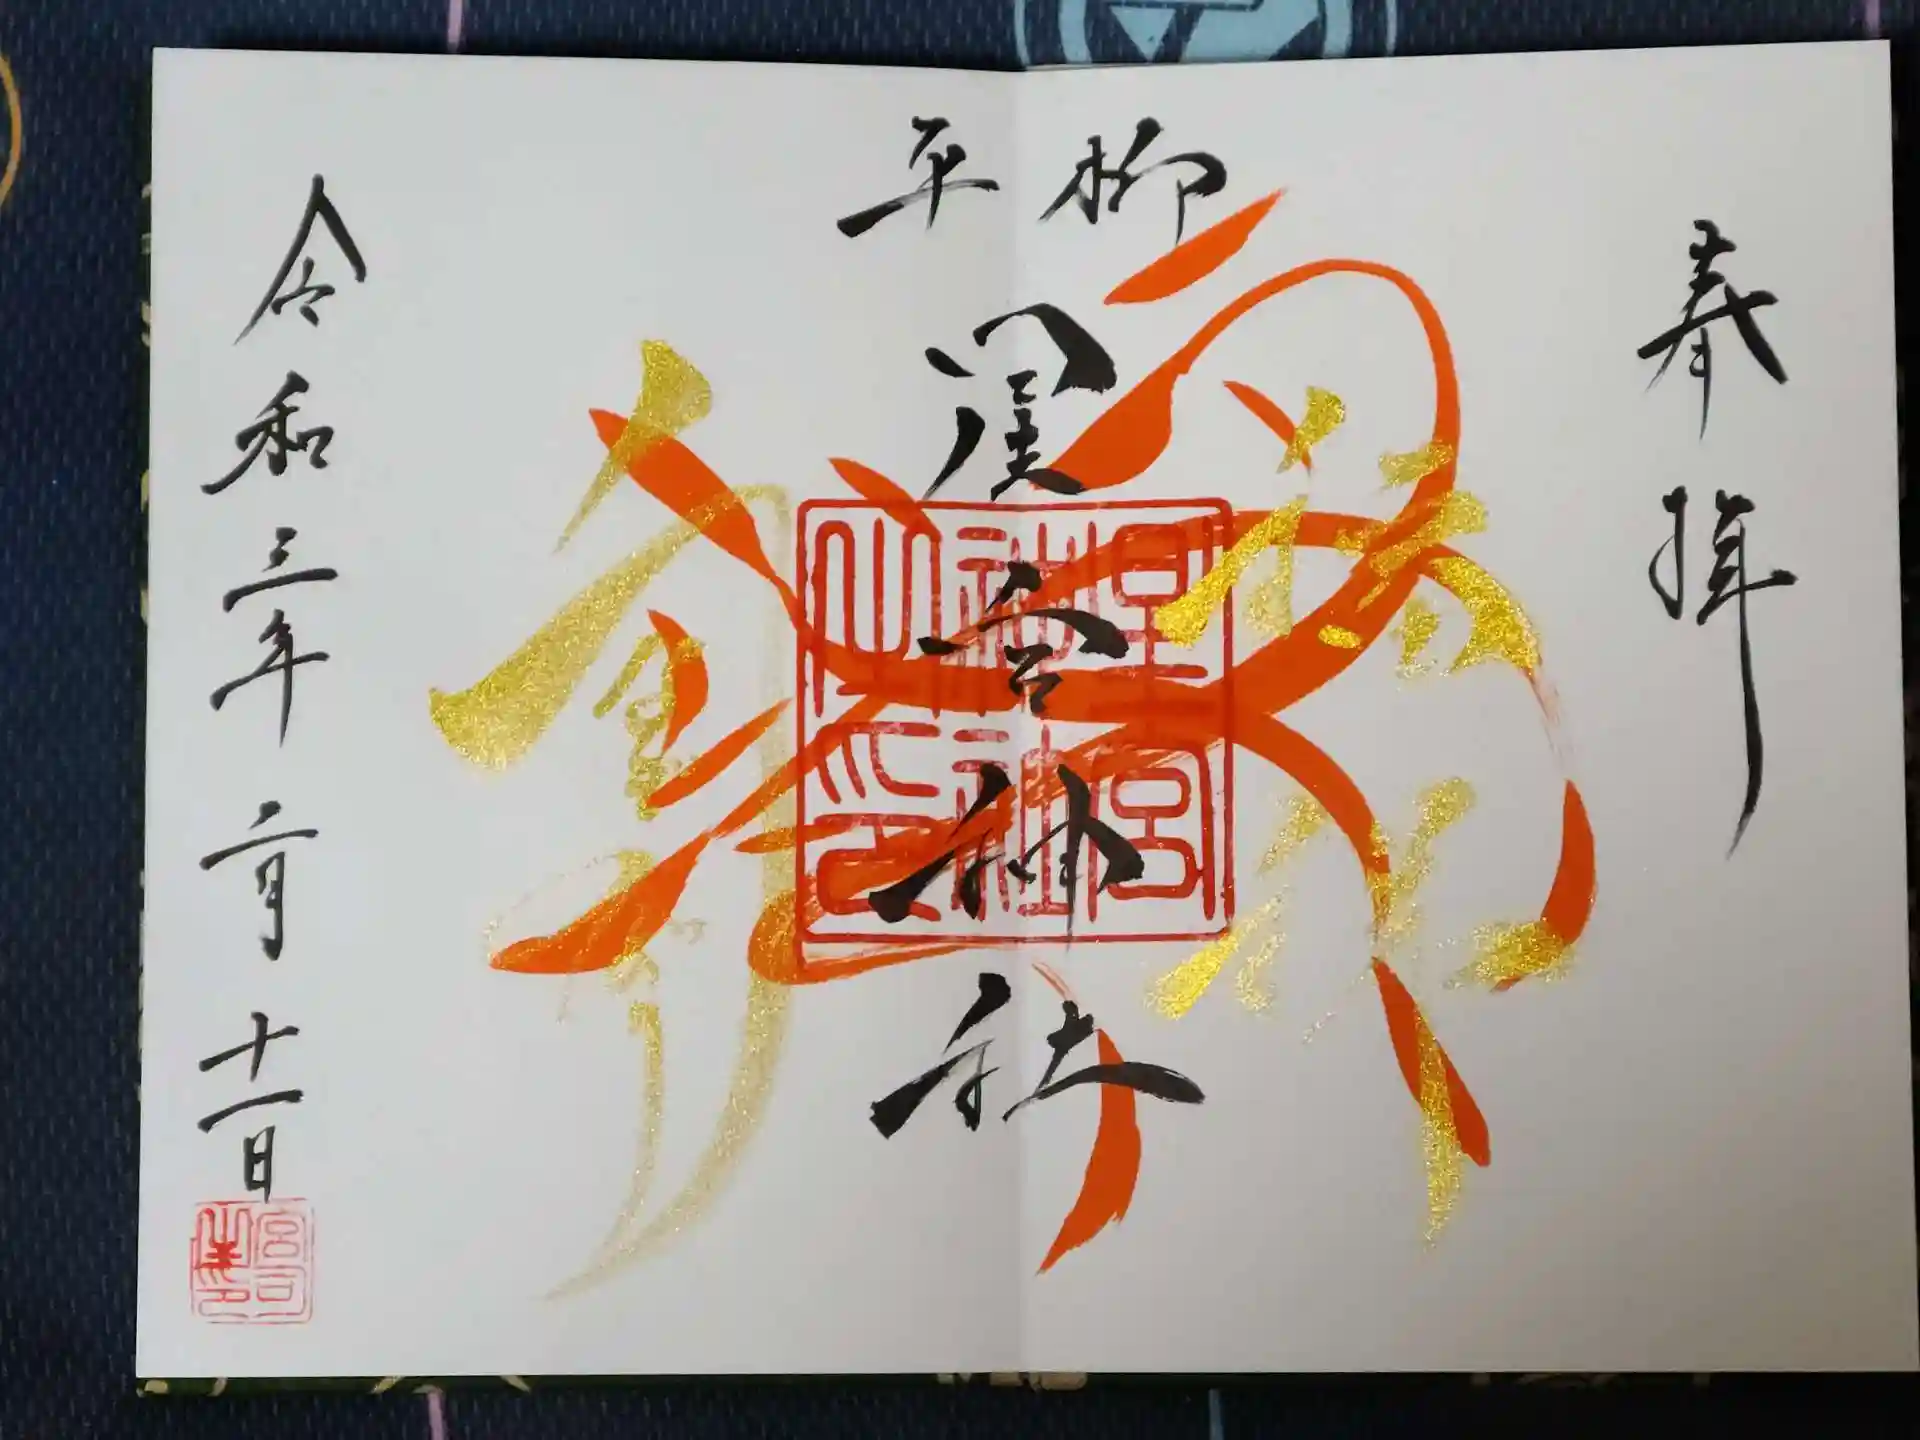 奉拝
柳平
星宮神社
星宮
神社
之印
令和三年二月十一日
宮司
之印